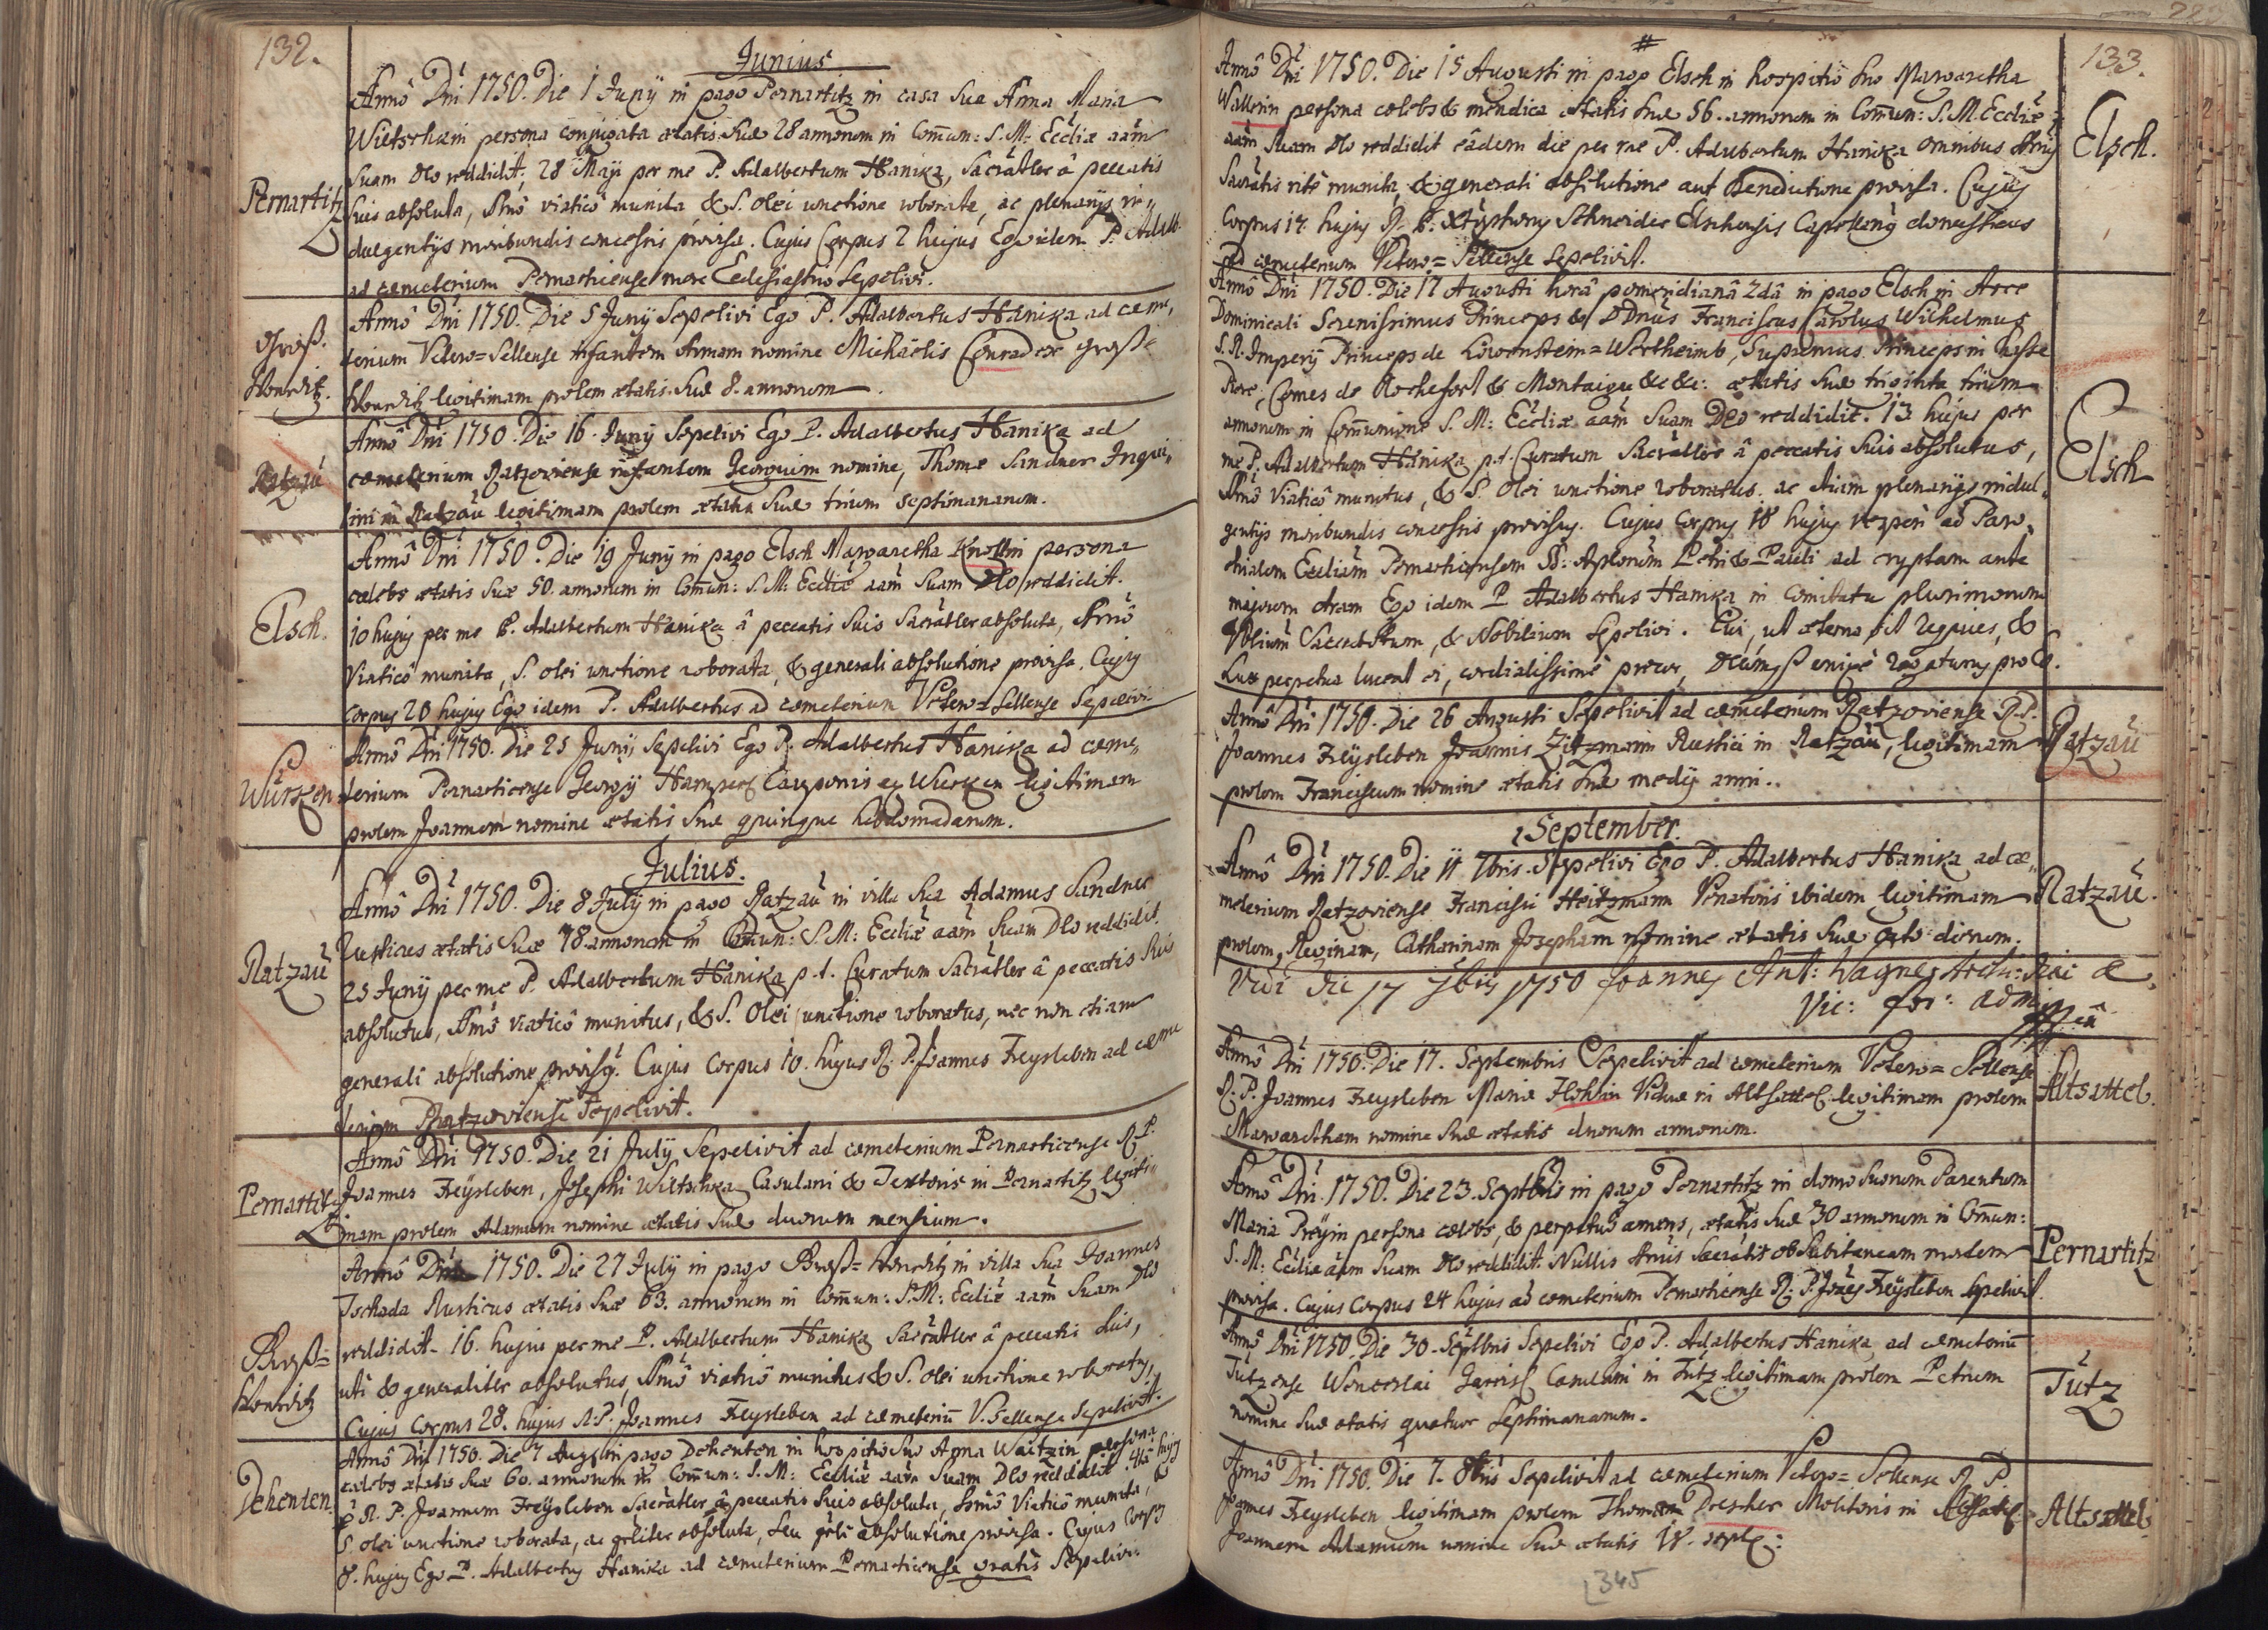 132.
Junius
Pernartitz
Annô Dni 1750. Die 1 Junÿ in pago Pernartitz in casa sua Anna Maria
Wietschkin persona conjugata ætatis suæ 28 annorum in Comun: S. M: Eccliæ aam
suam Deo reddidit, 28 Maji per me P. Adalbertum Hanika, Sacratler â peccatis
suis absoluta, Smô viaticô munita & S. olei unctione roborata, ac plenarÿs in=
dulgentÿs moribundis concessis provisa. Cujus Corpus 2 hujus Ego idem P. Adalb.
ad cæmeterium Pernarticense more Ecclesiastico Sepelivi.
Groß-
Honrditz.
Annô Dni 1750. Die 5 Junÿ Sepelivi Ego P. Adalbertus Hanika ad cæme,
terium Vetero=Sellense infantem Annam nomine Michaelis Conrad ex Groß=
legitimam prolem ætatis suæ 8. annorum
Ratzau
Annô Dni 1750. Die 16. Junÿ Sepelivi Ego P. Adalbertus Hanika ad
cæmeterium Ratzoviense infantem Georgium nomine, Thomæ Sandner Inqui,,
lini in Ratzau legitimam prolem ætatis suæ trium septimanarum.
Elsch.
Annô Dni 1750. Die 19 Junÿ in pago Elsch Margaretha Knollin persona
cælebs ætatis suæ 50. annorum in Comun: S. M: Eccliæ aam suam Deo reddidit.
10 hujus per me P. Adalbertum Hanika â peccatis suis Sacratler absoluta, Smô
Viaticô munita, S. olei unctione roborata, & generali absolutione provisa. Cujus
corpus 20 hujus Ego idem P. Adalbertus ad cæmeterium Vetero=Sellense Sepelivi.
Wurken
Annô Dni 1750. Die 25 Junÿ Sepelivi Ego P. Adalbertus Hanika ad cæme,
terium Pernarticense Georgÿ Hamperl Cauponis ex Wurken legitimam
prolem Joannem nomine ætatis suæ quinque hebdomadarum.
Julius.
Ratzau
Annô Dni 1750. Die 8 Julÿ in pago Ratzau in villa sua Adamus Sandner
Rusticus ætatis suæ 78 annorum in Comun: S. M: Eccliæ aam suam Deo reddidit.
25 Junÿ per me P. Adalbertum Hanika p. t. Curatum Sacratler â peccatis suis
absolutus, Smô viaticô munitus, & S. Olei unctione roboratus, nec non etiam
generali absolutione provisus. Cujus Corpus 10. hujus R. P. Joannes Freysleben ad cæme
terium Ratzoviense Sepelivit.
Pernartitz
Annô Dni 1750. Die 21 Julÿ Sepelivit ad cæmeterium Pernarticense R. P.
Joannes Freÿsleben, Josephi Wiltschka Casulani & Textoris in Pernartitz legiti=
mam prolem Adamum nomine ætatis suæ duorum mensium.
Groß=
Annô Dni 1750. Die 27 Julÿ in pago Groß= in villa sua Joannes
Tschada Rusticus ætatis suæ 63. annorum in Comun: S. M: Eccliæ aam suam Deo
reddidit. 16. hujus per me P. Adalbertum Hanika Sacratler â peccatis suis,
uti & generaliter absolutus, Smô viaticô munitus & S. olei unctione roboratus,
Cujus Corpus 28. hujus R. P. Joannes Freysleben ad cæmeteriu V. Sellense Sepelivit.
Dehenten.
Annô Dni 1750. Die 7 Augsti in pago Dehenten in hospitio suo Anna Waitzin persona
cælebs ætatis suæ 60. annorum in Comun: S. M: Eccliæ aam suam Deo reddidit 4ta hujus
R. P. Joannem Freÿsleben Sacratler â peccatis suis absoluta, Smô Viaticô munita,
S. olei unctione roborata, ac gñliter absoluta, seu gñli absolutione provisa. Cujus Corpus
8. hujus Ego P. Adalbertus Hanika ad cæmeterium Pernarticense gratis Sepelivi.
133.
Annô Dni 1750. Die 15 Augusti in pago Elsch in hospitio suo Margaretha
Wallerin persona cælebs & mendica ætatis suæ 56. annorum in Comun: S. M. Eccliæ
aam suam Deo reddidit eâdem die per me P. Adalbertum Hanika omnibus
Sacratis ritè munita, & generali absolutione aut Benedictione provisa. Cujus
Corpus 17 hujus R. P. Schneider Elschensis Capellanus domesticus
ad cæmeterium Vetero=Sellense Sepelivit.
Elsch.
Annô Dni 1750. Die 17 Augusti horâ pomeridianâ 2dâ in pago Elsch in Arce
Dominicali Serenissimus Princeps & DDnus Franciscus Carolus Wilhelmus
S. R. Imperÿ Princeps de Löwenstein=Wertheimb, Supremus Princeps in Chasse
Piere, Comes de Rochefort & Montaigu &c &c: ætatis suæ triginta trium
annorum in Communione S. M: Eccliæ aam suam Deo reddidit. 13 hujus per
me P. Adalbertum Hanika p. t. Curatum Sacrâlter â peccatis suis absolutus,
Smô Viaticô munitus, & S. Olei unctione roboratus. ac etiam plenarÿs indul,
gentÿs moribundis concessis provisus. Cujus Corpus 18 hujus vesperi ad Paro,
chialem Eccliam Pernarticensem SS: Aplorum Petri & Pauli ad cryptam ante
majorem Aram Ego idem P. Adalbertus Hanika in Comitatu plurimorum
Sacerdotum, & Nobilium Sepelivi. Cui, ut æterna sit requies, &
Lux perpetua luceat ei, cordialissimè precor,
Elsch
Annô Dni 1750. Die 26 Augusti Sepelivit ad cæmeterium Ratzoviense R. P.
Joannes Freÿsleben Joannis Zitzmann Rustici in Ratzau, legitimam
prolem Franciscum nomine ætatis suæ medÿ anni.
Ratzau
September.
Annô Dni 1750. Die 11 7bris. Sepelivi Ego P. Adalbertus Hanika ad cæ,
meterium Ratzoviense Francisci Heitzmann Venatoris ibidem legitimam
prolem, Reginam, Catharinam Josepham nomine ætatis suæ octo dierum.
Ratzau.
Vidi die 17 7bris 1750 Joannes Ant: Wagner Arch:
Vic: for:
Annô Dni 1750. Die 17. Septembris Sepelivit ad cæmeterium Vetero=Sellense
R. P. Joannes Freysleben Mariæ Viduæ in Altsattel legitimam prolem
Margaretham nomine suæ ætatis duorum annorum.
Altsattel.
Annô Dni 1750. Die 23. Septbris in pago Pernartitz in domo suorum Parentum
Maria Preÿin persona cælebs, & perpetuô amens, ætatis suæ 30 annorum in Comun:
S. M: Eccliæ aam suam Deo reddidit. Nullis Smis Sacratis ob subitaneam mortem
provisa. Cujus Corpus 24 hujus ad cæmeterium Pernarticense R: P. Joães Freÿsleben sepelivit.
Pernartitz
Annô Dni 1750. Die 30. Septbris Sepelivi Ego P. Adalbertus Hanika, ad cæmeteriu
Tützense Wenceslai Casulani in Tutz legitimam prolem Petrum
nomine suæ ætatis quatuor Septimanarum.
Tutz
Annô Dni 1750. Die 7. 8bris Sepelivit ad cæmeterium Vetero=Sellense R. P.
Joannes Freysleben legitimam prolem Thomæ Drescher Molitoris in Altsatl
Joannem Adamum nomine suæ ætatis
Altsattel
345